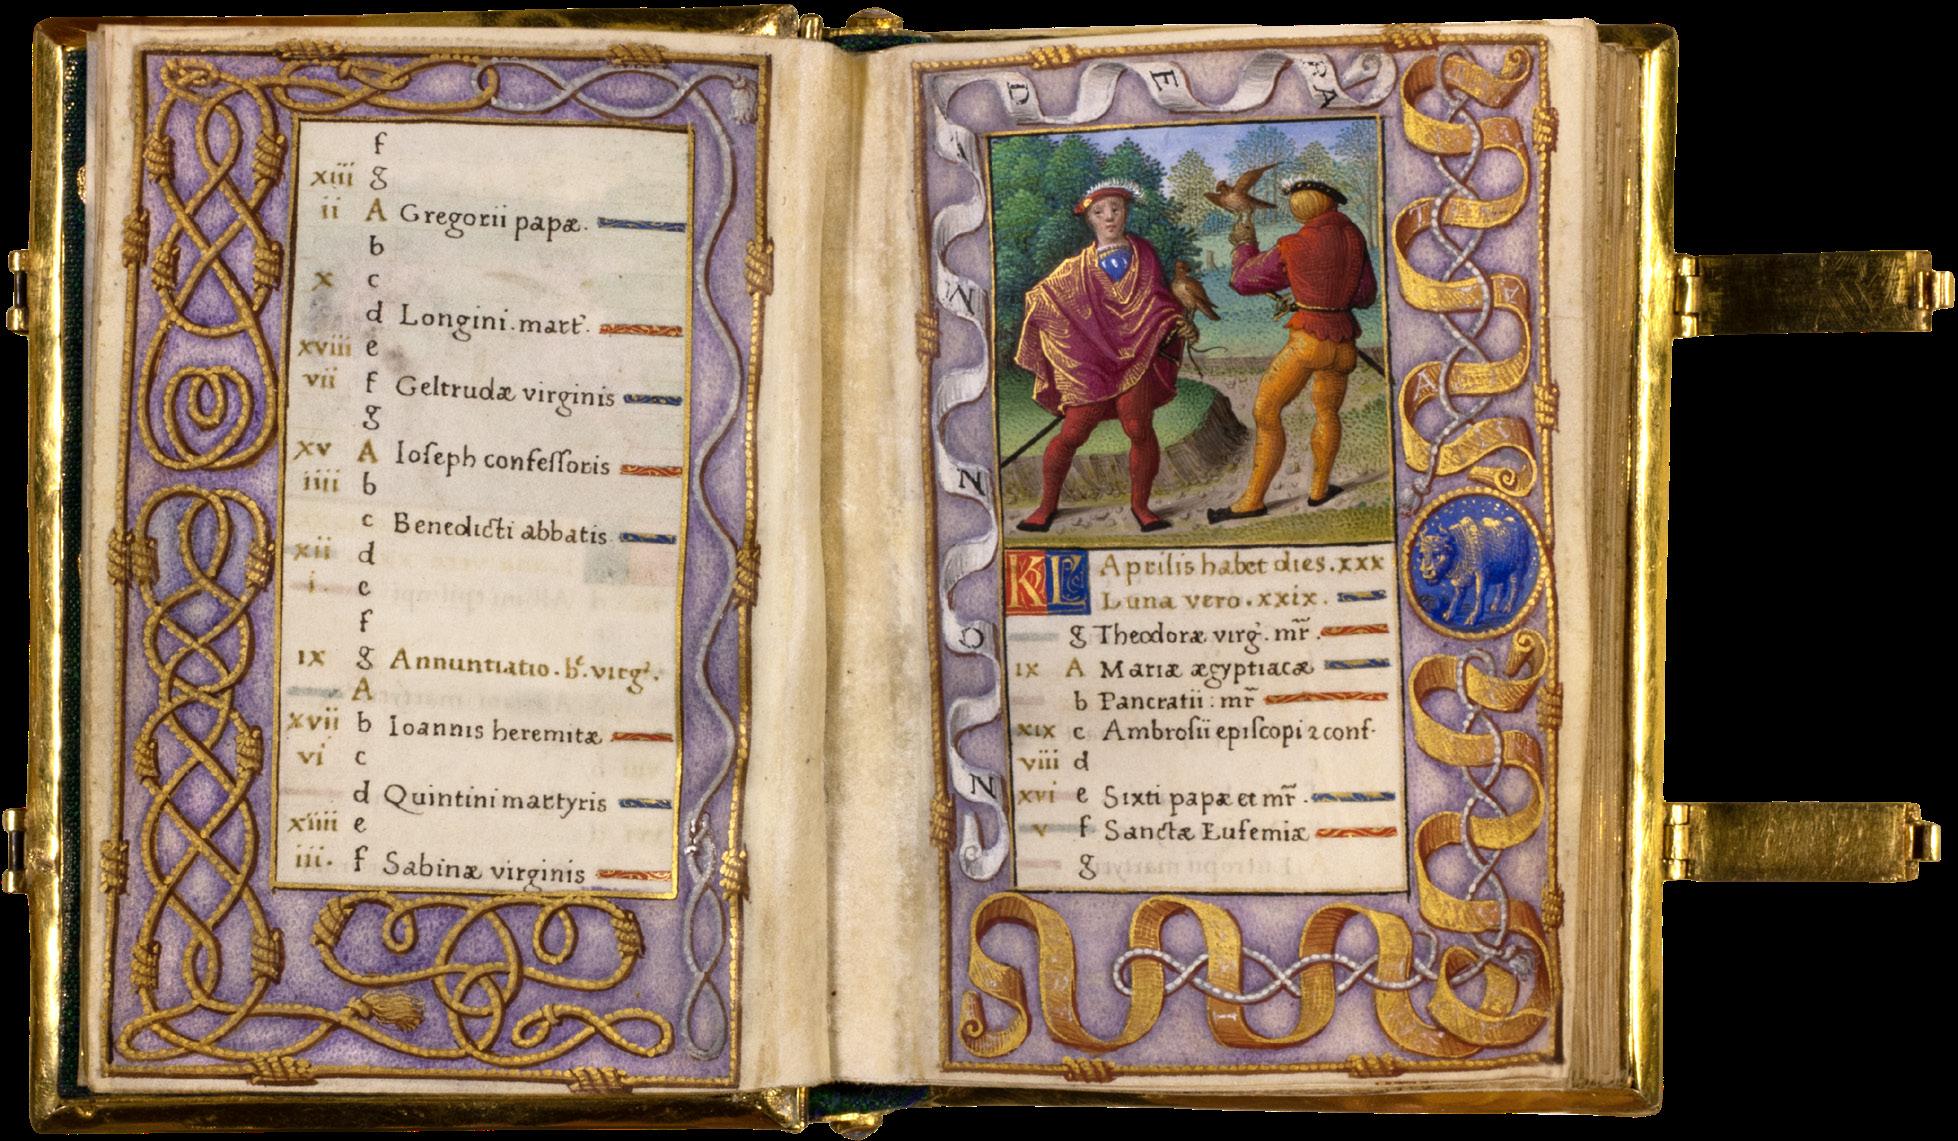 f
xiii g
ii A Gregorii papæ.
b
x c
d Longini. mart̃.
xviii e
vii f Geltrudæ virginis
g
xv A Ioſeph confeſſoris
iiii b
c Benedicti abbatis
xii d
i e
f
ix g Annuntiatio. b̃. virg̃.
A
xvii b Ioannis heremitæ
vi c
d Quintini martyris
xiiii e
iii. f Sabinæ virginis
D E RA
N
O
N
KL Aprilis habet dies. xxx
Luna vero. xxix.
g Theodoræ virg̃. mr̃.
ix A Mariæ ægyptiacæ
b Pancratii: mr̃
xix c Ambroſii epiſcopi ⁊ conf.
viii d
xvi e Sixti papæ et mr̃.
v f Sanctæ Eufemiæ
g